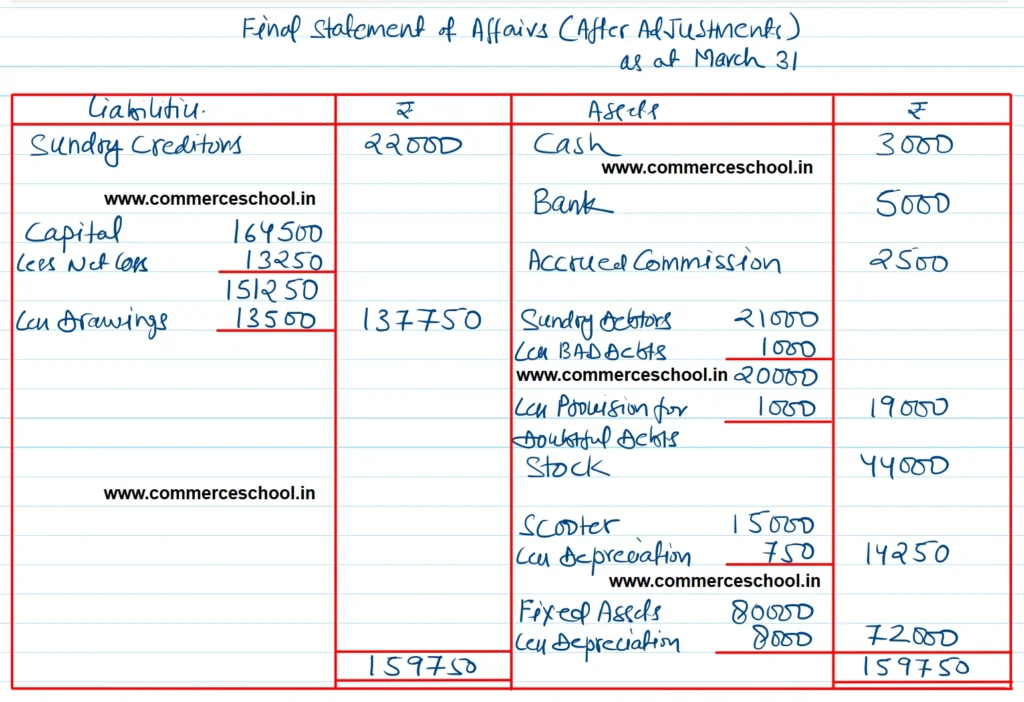 Final Statement of Affairs (After Adjustments)
as at March 31
Liabilities. ₹ Assets ₹
Sundry Creditors 22000 Cash 3000
www.commerceschool.in
www.commerceschool.in
Bank 5000
Capital 164500
Less Net Loss 13250 Accrued Commission 2500
151250
Less Drawings 13500 137750 Sundry Debtors 21000
Less BAD Debts 1000
www.commerceschool.in 20000
Less Provision for 1000 19000
Doubtful Debts
Stock 44000
www.commerceschool.in
Scooter 15000
Less Depreciation 750 14250
www.commerceschool.in
Fixed Assets 80000
Less Depreciation 8000 72000
159750 159750